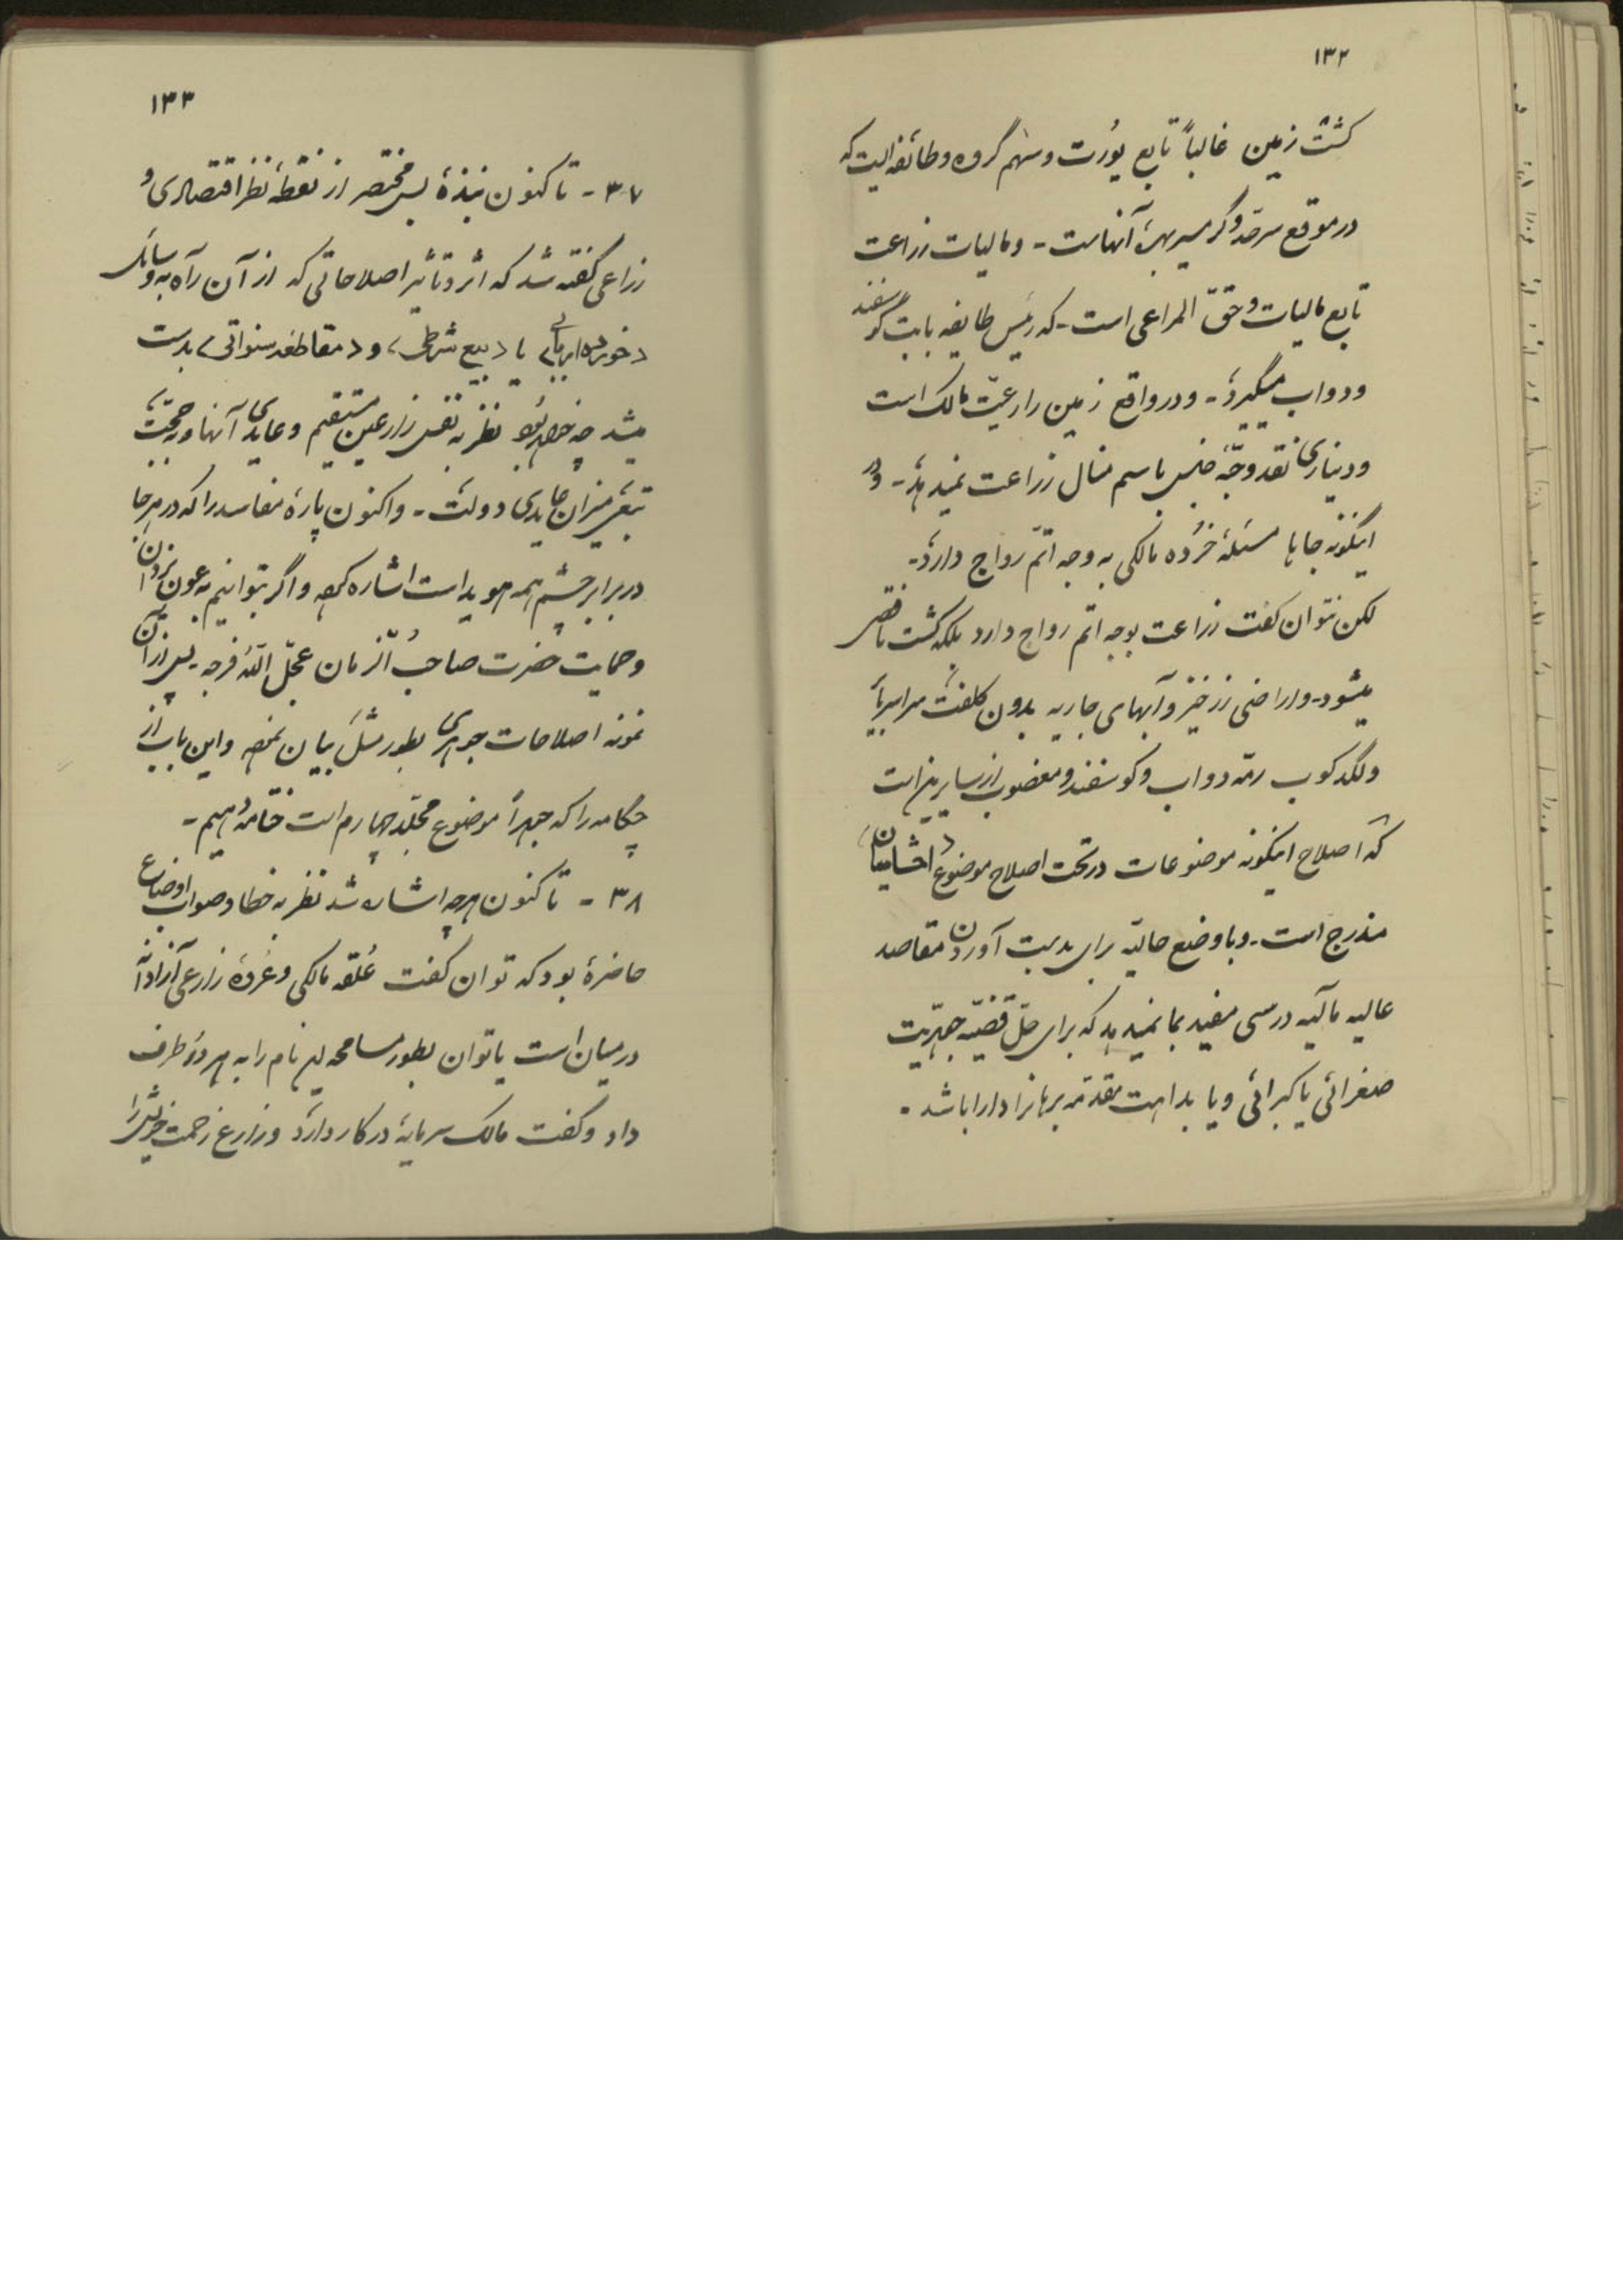 ۱۳۲
کشت زمین غالباً تابع یُورت و سهم گروه و طائفه‌ایست که
در موقع سرحدّ و گرمسیر بهرهٔ آنهاست - و مالیات زراعت
تابع مالیات و حقّ المراعی است - که رئیس طایفه بابت گوسفند
و دواب میگیرد - و در واقع زمین را رعیّت مالک است
و دیناری نقد و حبّهٔ جنس باسم منال زراعت نمیدهد - و در
اینگونه جاها مسئلهٔ خُرده مالکی به وجه اتمّ رواج دارد -
لکن نتوان گفت زراعت بوجه اتم رواج دارد بلکه کشت ناقص
میشود - و اراضی زرخیز و آبهای جاریه بدون کلفت
و لگدکوب رمّه دواب و گوسفند و مغضوب از سایرین است
که اصلاح اینگونه موضوعات در تحت اصلاح موضوع
مندرج است - و با وضع حالیّه برای بدست آوردن مقاصد
عالیه مآلیه درسی مفید بما نمیدهد که برای حلّ قضیّه جهریّت
صغرائی یا کبرائی و یا بداهت مقدّمه برهانرا دارا باشد -
۱۳۳
۳۷ - تا کنون نبذهٔ بس مختصر از نقطهٔ نظر اقتصادی و
زراعی گفته شد که اثر و تأثیر اصلاحاتی که از آن راه به وسائل
یا «بیع شرطی» و «مقاطعه سنواتی» بدست
میشد چه خواهد بود نظر به نفس زارعین مستقیم و عایدی آنها و به حجّت
میزان عایدی دولت - و اکنون پارهٔ مفاسد را که در هر جا
در برابر چشم همه هویداست اشاره کرده و اگر بتوانیم به عون یزدان
و حمایت حضرت صاحبُ الزمان عجّل اللّهُ فرجه - پس از آن
نمونه اصلاحات جوهری بطور مثل بیان نموده و این باب از
چکامه را که جهراً موضوع مجلّد چهارم است خاتمه دهیم -
۳۸ - تا کنون هرچه اشاره شد نظر به خطا و صواب اوضاع
حاضرهٔ بود که توان گفت عُلقه مالکی و زارعی
در میان است یا توان بطور مسامحه این نام را به هر دو طرف
داد و گفت مالک سرمایهٔ در کار دارد و زارع زحمت خویش را